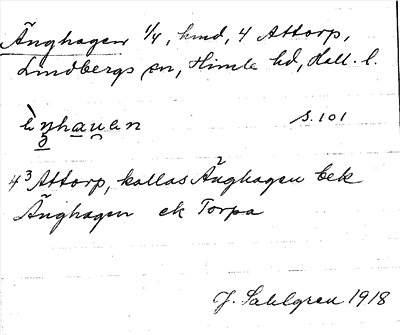 Änghagen 1/4, hmd, 4 Attorp,
Lindbergs sn, Himle hd, Hall. l.
s. 101
4³ Attorp, kallas Änghagen bek
Änghagen ek Torpa
J. Sahlgren 1918